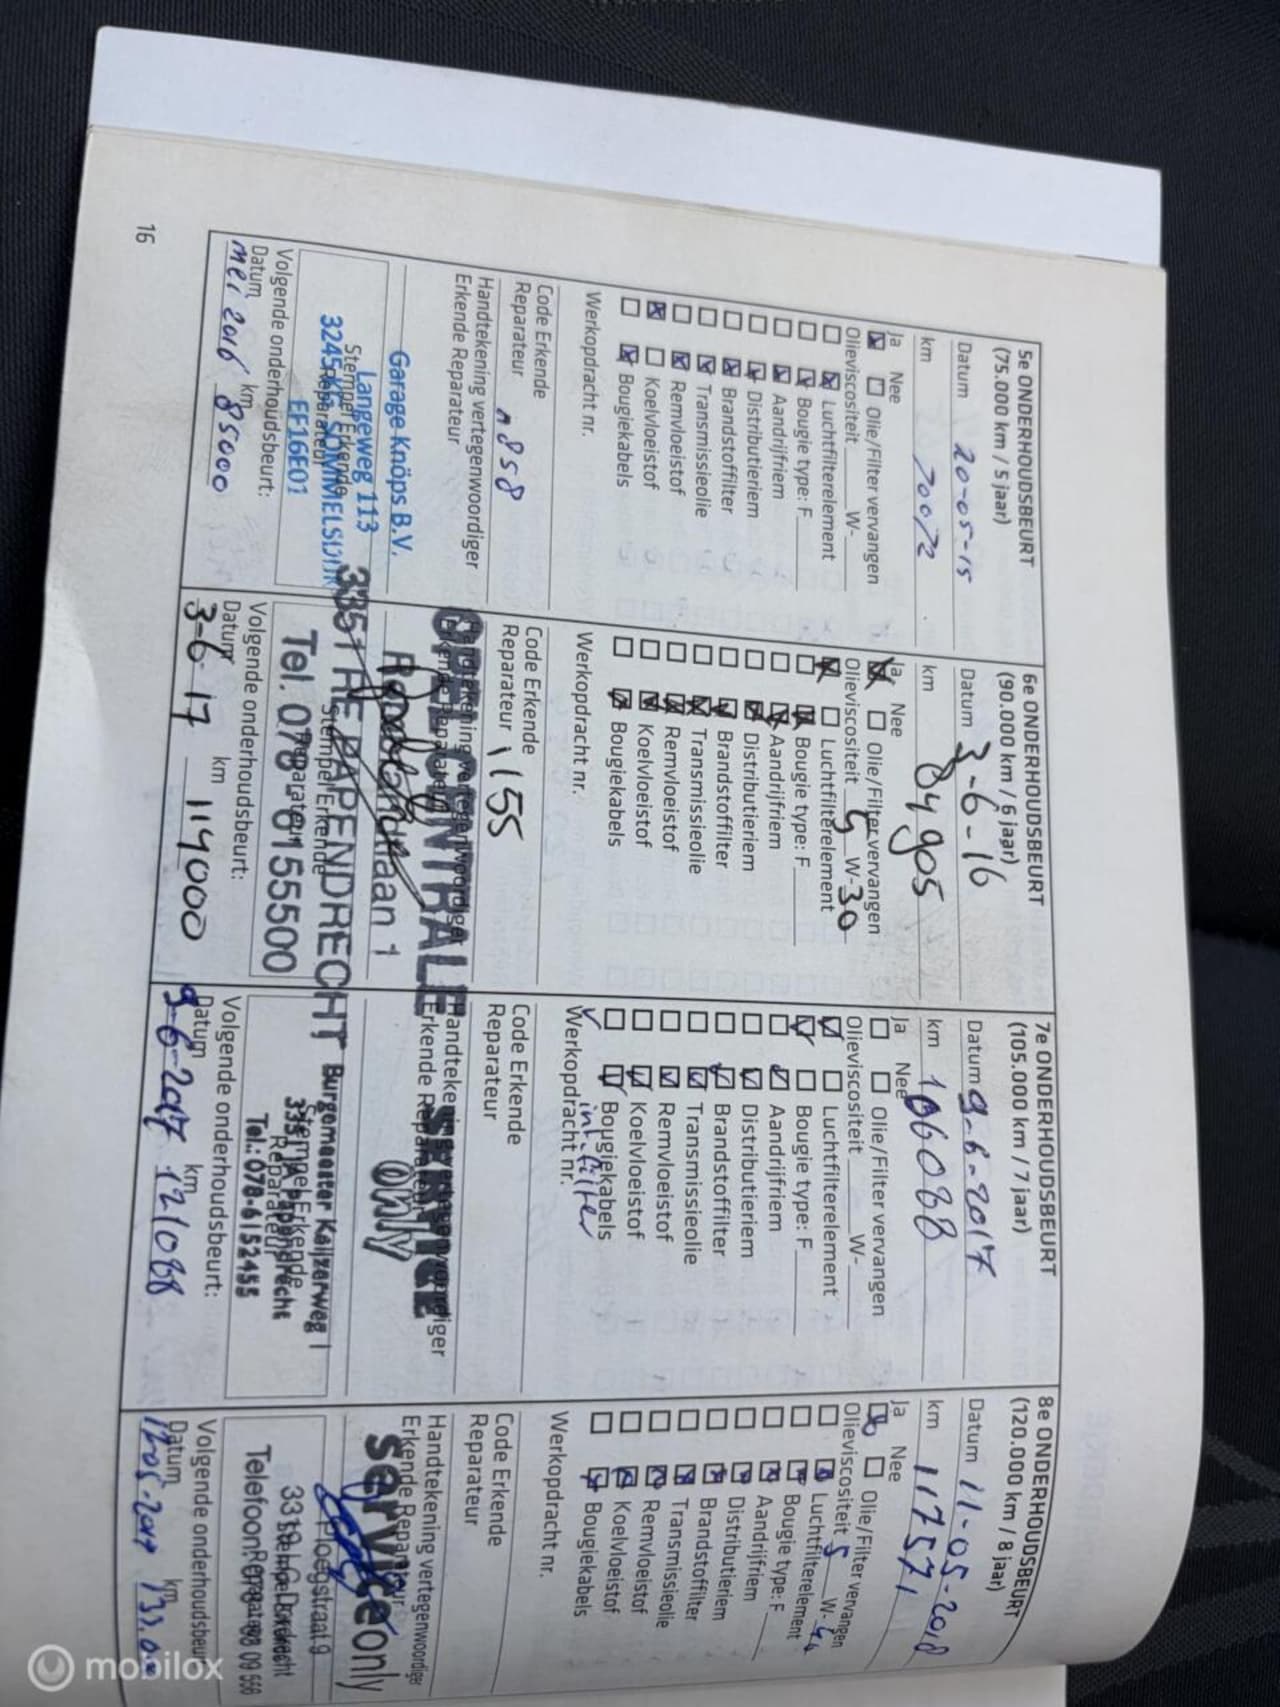 5e ONDERHOUDSBEURT
(75.000 km / 5 jaar)
Datum 20-05-15
km 70072
Ja Nee
Olie/Filter vervangen
Olieviscositeit W-
Luchtfilterelement
Bougie type: F
Aandrijfriem
Distributieriem
Brandstoffilter
Transmissieolie
Remvloeistof
Koelvloeistof
Bougiekabels
Werkopdracht nr.
Code Erkende
Reparateur
Handtekening vertegenwoordiger
Erkende Reparateur
Garage Knöps B.V.
Langeweg 113
Stempel Erkende
Reparateur
EF16E01
Volgende onderhoudsbeurt:
Datum km
mei 2016 85000
6e ONDERHOUDSBEURT
(90.000 km / 6 jaar)
Datum 3-6-16
km 84905
Ja Nee
Olie/Filter vervangen
Olieviscositeit 5 W-30
Luchtfilterelement
Bougie type: F
Aandrijfriem
Distributieriem
Brandstoffilter
Transmissieolie
Remvloeistof
Koelvloeistof
Bougiekabels
Werkopdracht nr.
Code Erkende
Reparateur 1155
Handtekening vertegenwoordiger
Erkende Reparateur
OPEL CENTRALE
3351 HE PAPENDRECHT
Stempel Erkende
Reparateur
Tel. 078-6155500
Volgende onderhoudsbeurt:
Datum km
3-6-17 114000
7e ONDERHOUDSBEURT
(105.000 km / 7 jaar)
Datum 9-6-2017
km 106088
Ja Nee
Olie/Filter vervangen
Olieviscositeit W-
Luchtfilterelement
Bougie type: F
Aandrijfriem
Distributieriem
Brandstoffilter
Transmissieolie
Remvloeistof
Koelvloeistof
Bougiekabels
Werkopdracht nr.
Code Erkende
Reparateur
Handtekening vertegenwoordiger
Erkende Reparateur
only
Burgemeester Keijzerweg 1
Stempel Erkende
Papendrecht
Reparateur
Tel.: 078-6152455
Volgende onderhoudsbeurt:
Datum km
9-6-2017 121088
8e ONDERHOUDSBEURT
(120.000 km / 8 jaar)
Datum 11-05-2018
km 117571
Ja Nee
Olie/Filter vervangen
Olieviscositeit 5 W-
Luchtfilterelement
Bougie type: F
Aandrijfriem
Distributieriem
Brandstoffilter
Transmissieolie
Remvloeistof
Koelvloeistof
Bougiekabels
Werkopdracht nr.
Code Erkende
Reparateur
Handtekening vertegenwoordiger
Erkende Reparateur
service only
Ploegstraat 9
Dordrecht
Telefoon:
Volgende onderhoudsbeurt
Datum km
16
mobilox